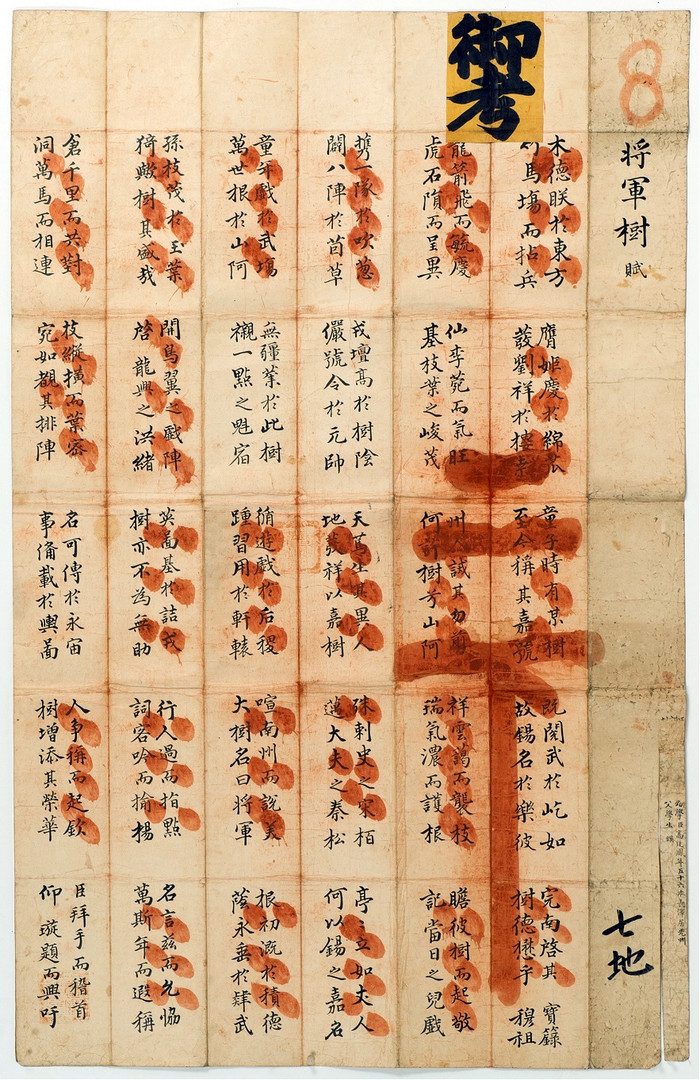 御考
8
將軍樹 賦
七地
木德眹於東方 膺姬慶於綿瓜 童子時有某樹 既閱武於屹如 完南啓其 寶籙
竹馬塲而拈兵 發劉祥於樓桑 至今稱其嘉號 故錫名於樂彼 樹德懋乎 穆祖
龍箭飛而毓慶 仙李菀而氣旺 州人誡其勿剪 祥雲靄而襲枝 瞻彼樹而起敬
虎石隕而呈異 基枝葉之峻茂 何許樹兮山阿 瑞氣濃而護根 記當日之兒戲
携一隊於吹葱 戎壇高於樹陰 天篤生其異人 殊刺史之宋栢 亭〻立如丈人
闢八陣於苜草 儼號令於元帥 地發祥以嘉樹 邁大夫之秦松 何以錫之嘉名
童年戲於武塲 無疆業於此樹 脩遊戲於后稷 喧南州而說美 根初漑於積德
萬世根於山阿 襯一點之魁宿 踵習用於軒轅 大樹名曰將軍 蔭永垂於肆武
孫枝茂於玉葉 開鳥翼之戲陣 英啚基於詰戎 行人過而指點 名言玆而允恊
猗歟樹其盛哉 啓龍興之洪緒 樹亦不為無助 詞客吟而揄揚 萬斯年而遐稱
倉千里而共對 枝縱橫而葉密 名可傳於永宙 人爭稱而起欽 臣拜手而稽首
洞萬馬而相連 宛如覩其排陣 事備載於輿啚 樹增添其榮華 仰璇題而興吁